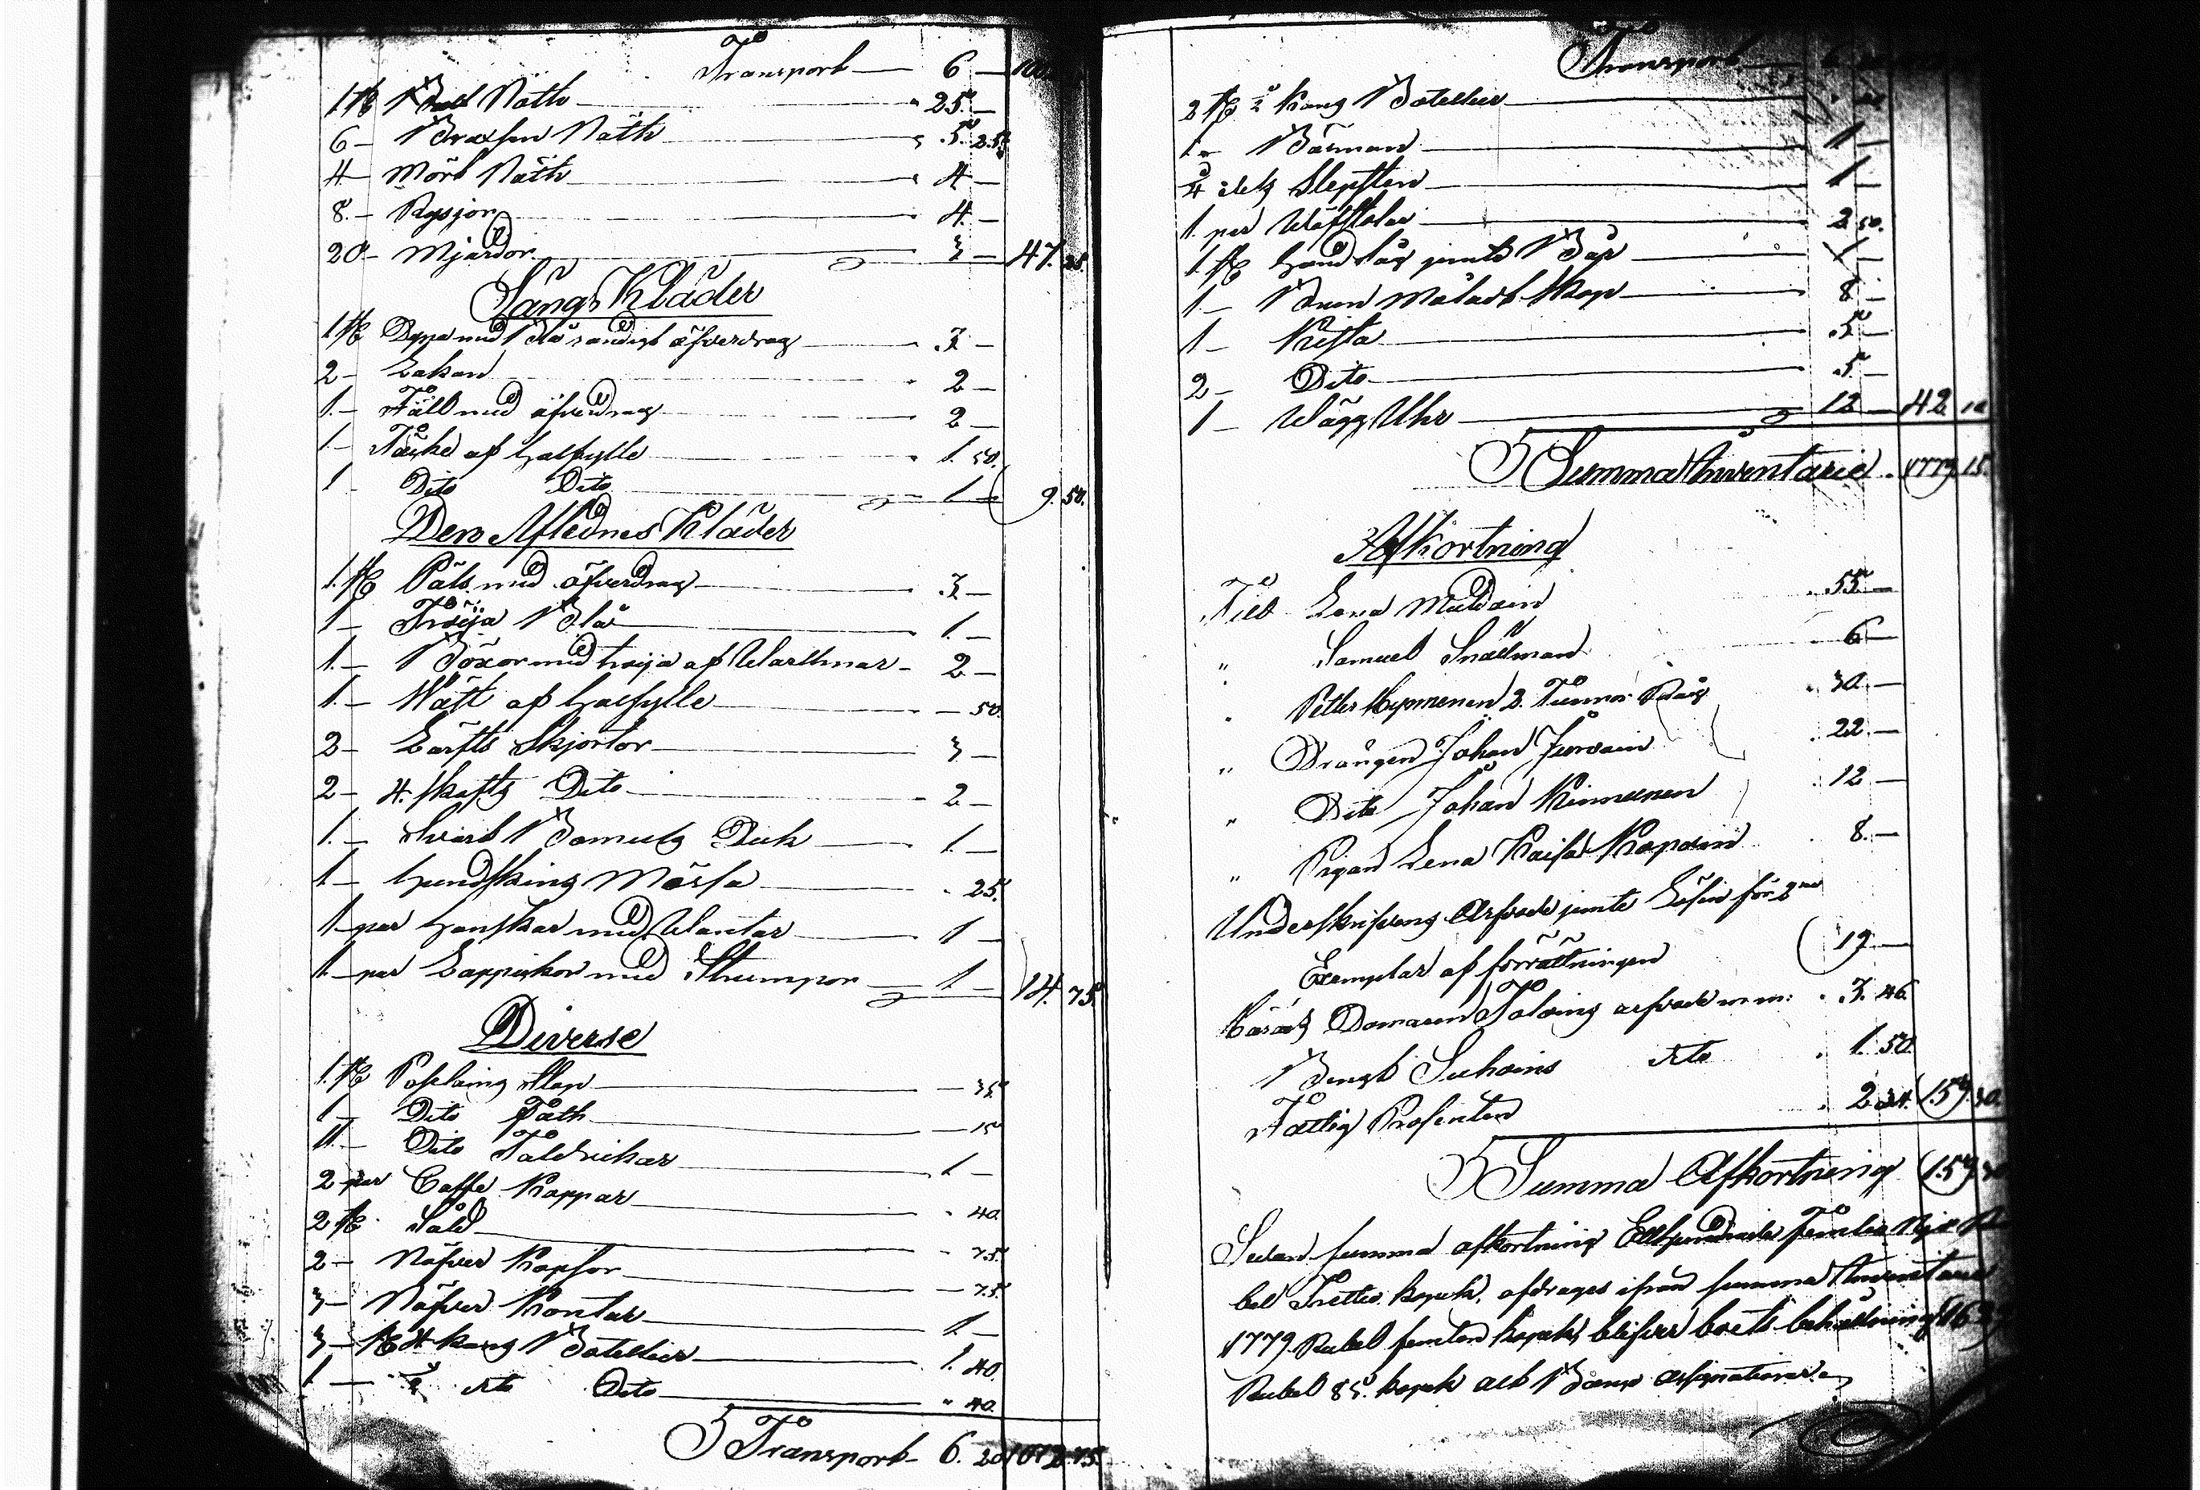 Transport — 6 —
1 st Nöth — 25 —
6 — Braxsen Näth — 5. 25.
4 — Mört Näth — 4 —
8 — Rysjor — 4 —
20 — Mjärdor — 3 — 47. 25.
Sängs Kläder
1 st med Blå randigt öfverdrag — 3 —
2 — Lakan — 2 —
1 — Fäll med öfverdrag — 2 —
1 — Täcke af halfylle — 1. 50.
1 — Dito Dito — 1 — 9. 50.
Den Aflednes Kläder
1 st Päls med öfverdrag — 3 —
1 — Tröija Blå — 1. —
1 — Böxor med tröija af Wallmar — 2 —
1 — Wäst af halfylle — 50.
2 — Lärfts Skjortor — 3 —
2 — 4. skafts Dito — 2 —
1 — Svart Bomulls Duk — 1. —
1 — hundskins Mössa — 25.
1 — par Hanskar med Wantar — 1 —
1 — par Lappskor med Strumpor — 1 — 14. 75.
Diverse
1 st Postlains — 35.
1 — Dito Fath — 15
11 — Dito Taldrickar — 1 —
2 par Caffe Koppar — 40
2 st Såld — 75.
2 — Näfver Kopsor — 75.
3 — Näfver Kontar — 1. —
3 — st 4 kans Botellier — 1. 40
1 — dito Dito — 40.
Transport 6. 20
Transport — 6
2 st kans Botellier
1 — Bösman — 1 —
Slepsten — 1 —
1 par Wäfstolar — 2 50.
1 st hand såg jemte Båge — 1 —
1 — Brun Måladt Skop — 8 —
1 — Kista — 5 —
2 — Dito — 5 —
1 — Wägg Uhr — 12 — 42 10
Summa Inventarie 1779. 15.
Afkortning
Till Lena — 55 —
" Samuel Snällman — 6 —
" Petter Hymenen 2. Tunnor Råg — 30 —
" Drängen Johan — 22 —
" Dito Johan Kinnunen — 12 —
" Pigan Lena Kaisa — 8. —
Underskrifvens Arfvode jemte Lösen för 2ne
Exemplar af förrättningen — 19 —
Härads Domaren arfvode m m: 3. 46.
Bengt dito 1. 50.
Fattig Prosenten 2 34. 159. 30.
Summa Afkortning 159. 30
Sedan summa afkortning Etthundrade Femtio Nijo Ru
bel Trettio kopek. afdrages ifrån summa Inventarie
1779 Rubel femton kopek, blifver boets behållning 1619
Rubel 85. kopek allt Banco assignationer.